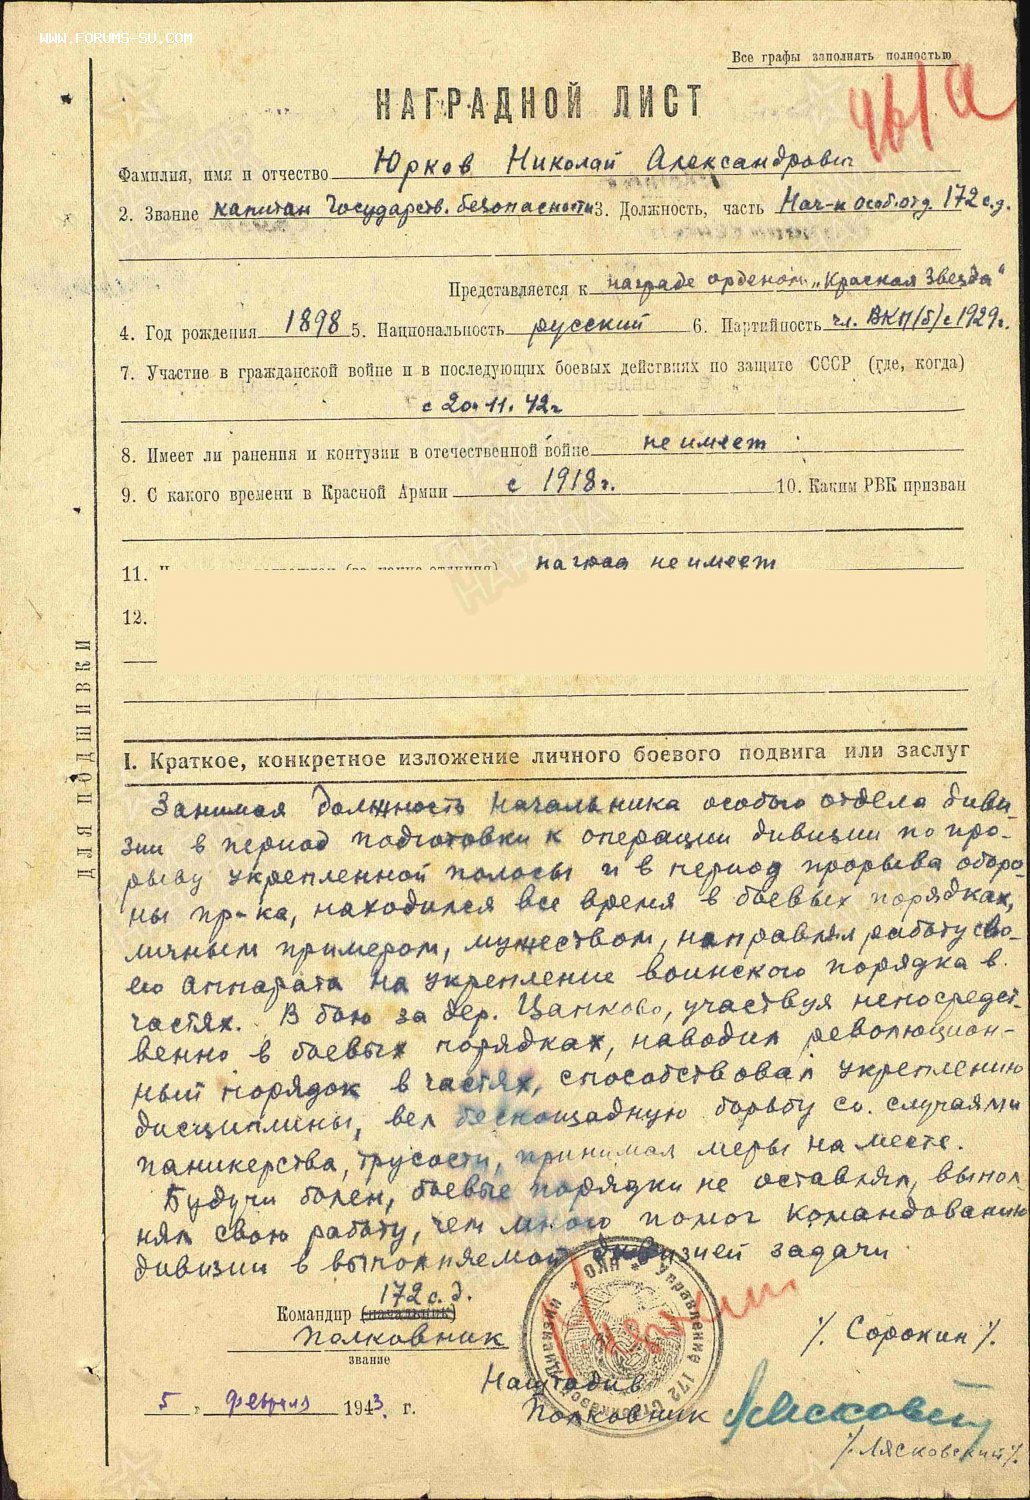 WWW.FORUMS-SU.COM
Все графы заполнять полностью
461а
НАГРАДНОЙ ЛИСТ
Фамилия, имя и отчество Юрков Николай Александрович
2. Звание капитан Государств. безопасности 3. Должность, часть Нач-к особ.отд. 172 с.д.
Представляется к награде орденом „Красная Звезда"
4. Год рождения 1898 5. Национальность русский 6. Партийность чл. ВКП(б) с 1929г.
7. Участие в гражданской войне и в последующих боевых действиях по защите СССР (где, когда)
с 20.11.42г
8. Имеет ли ранения и контузии в отечественной войне не имеет
9. С какого времени в Красной Армии с 1918г. 10. Каким РВК призван
11. наград не имеет
12.
ДЛЯ ПОДШИВКИ
I. Краткое, конкретное изложение личного боевого подвига или заслуг
Занимая должность начальника особого отдела диви-
зии в период подготовки к операции дивизии по про-
рыву укрепленной полосы и в период прорыва оборо-
ны пр-ка, находился все время в боевых порядках,
личным примером, мужеством, направлял работу сво-
его аппарата на укрепление воинского порядка в
частях. В бою за дер. Цапково, участвуя непосредст-
венно в боевых порядках, наводил революцион-
ный порядок в частях, способствовал укреплению
дисциплины, вел беспощадную борьбу со случаями
паникерства, трусости, принимал меры на месте.
Будучи болен, боевые порядки не оставлял, выпол-
нял свою работу, чем много помог командованию
дивизии в выполняемой дивизией задачи
172 с.д.
Командир (начальник)
Полковник
звание
/. Сорокин /.
Управление 172 Стрелковой Дивизии
Наштадив
Полковник
Лясковский
/. Лясковский /.
5 февраля 1943 г.